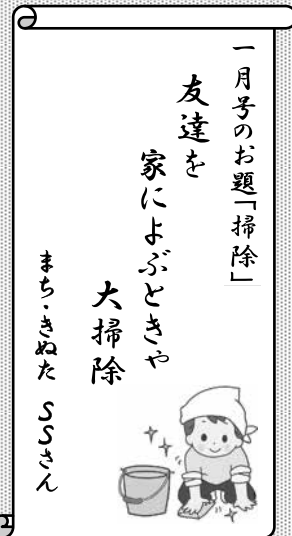 一月号のお題「掃除」
友達を
家によぶときや
大掃除
まち・きぬた SSさん